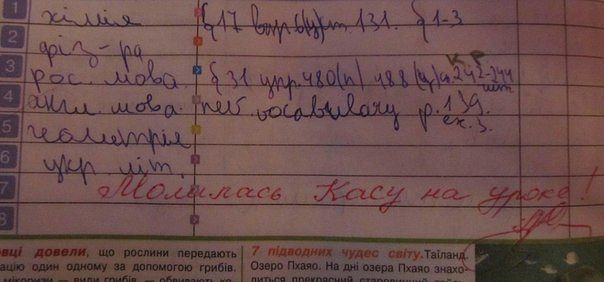 1 хімія § 17 вправ 131. § 1-3
2 фіз-ра
К. Р.
3 рос. мова. § 31 упр. 480(п) 488 (у) 242-244
4 англ. мова new vocabulary p. 139.
ex. 3.
5 геометрія
6 укр літ.
7 Молилась Касу на уроке!
8
вці довели, що рослини передають
ацію один одному за допомогою грибів.
мікоризи — види грибів
7 підводних чудес світу. Таїланд.
Озеро Пхаяо. На дні озера Пхаяо знахо-
диться прекрасний старовинний